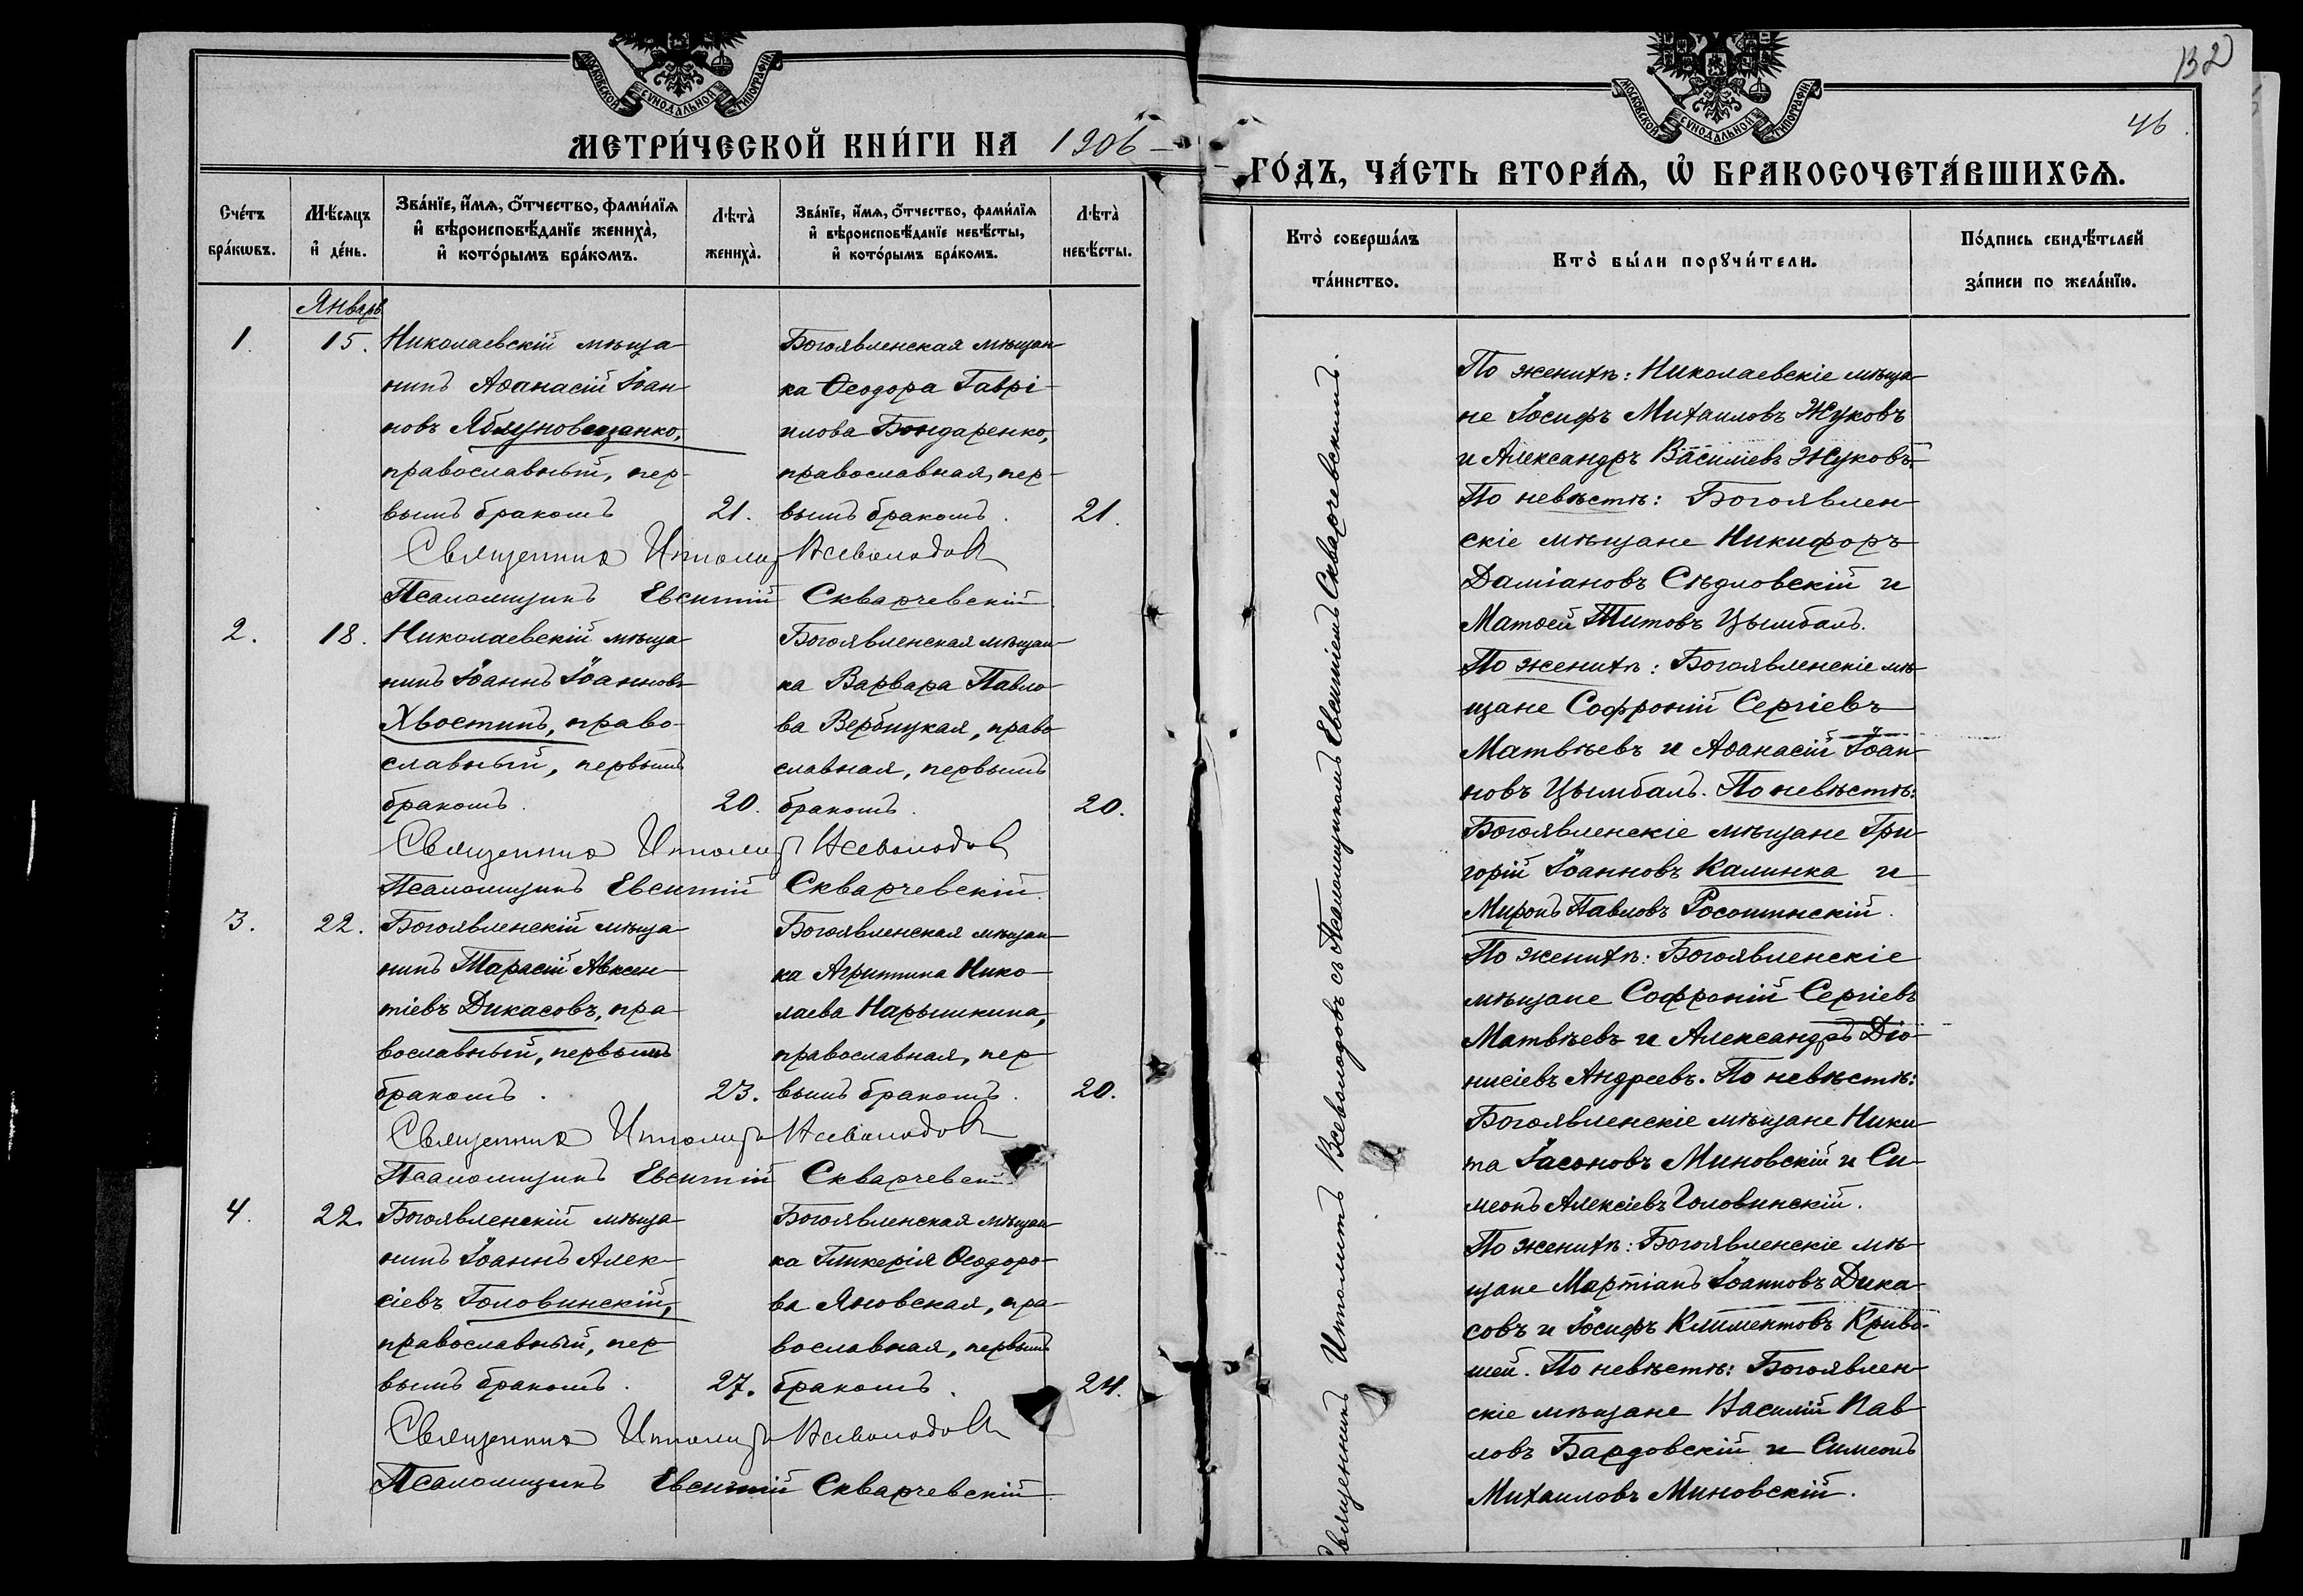 МОСКОВСКОЙ СУНОДАЛЬНОЙ ТИПОГРАФІИ
МЕТРИ́ЧЕСКОЙ КНИ́ГИ НА 1906
Сче́тъ бра́кѡвъ.
Мѣ́сяцъ и҆ де́нь.
Зва́нїе, и҆́мѧ, ѻ҆́тчество, фами́лїѧ и҆ вѣроисповѣ́данїе жениха̀, и҆ кото́рымъ бра́комъ.
Лѣта̀ жениха̀.
Зва́нїе, и҆́мѧ, ѻ҆́тчество, фами́лїѧ и҆ вѣроисповѣ́данїе невѣ́сты, и҆ кото́рымъ бра́комъ.
Лѣта̀ невѣ́сты.
Январь
1. 15.
Николаевскій мѣща-
нинъ Аѳанасій Іоан-
новъ
православный, пер-
вымъ бракомъ 21.
Богоявленская мѣщан-
ка Ѳеодора Гаврі-
илова Бондаренко,
православная, пер-
вымъ бракомъ. 21.
Священник Ипполит Всеволодов
Псаломщикъ Евсигній Скварчевскій
2. 18.
Николаевскій мѣща-
нинъ Іоаннъ Іоанновъ
Хвостинъ, право-
славный, первымъ
бракомъ. 20.
Богоявленская мѣщан-
ка Варвара Павло-
ва Вербицкая, право-
славная, первымъ
бракомъ. 20.
Священник Ипполит Всеволодов
Псаломщикъ Евсигній Скварчевскій.
3. 22.
Богоявленскій мѣща-
нинъ Тарасій Авксен-
тіевъ Дикасовъ, пра-
вославный, первымъ
бракомъ. 23.
Богоявленская мѣщан-
ка Агриппина Нико-
лаева Нарышкина,
православная, пер-
вымъ бракомъ. 20.
Священник Ипполит Всеволодов
Псаломщикъ Евсигній Скварчевскій
4. 22.
Богоявленскій мѣща-
нинъ Іоаннъ Алек-
сіевъ Головинскій,
православный, пер-
вымъ бракомъ. 27.
Богоявленская мѣщан-
ка Гликерія Ѳеодоро-
ва Яновская, пра-
вославная, первымъ
бракомъ. 24.
Священник Ипполит Всеволодов
Псаломщикъ Евсигній Скварчевскій
132
46.
МОСКОВСКОЙ СУНОДАЛЬНОЙ ТИПОГРАФІИ
ГО́ДЪ, ЧА́СТЬ ВТОРА́Ѧ, Ѡ҆ БРАКОСОЧЕТА́ВШИХСѦ.
Кто̀ соверша́лъ та́инство.
Кто̀ бы́ли порꙋчи́тели.
По́дпись свидѣ́телей за́писи по жела́нїю.
Священникъ Ипполитъ Всеволодовъ съ Псаломщикомъ Евсигніемъ Скварчевскимъ.
По женихѣ: Николаевскіе мѣща-
не Іосифъ Михаиловъ Жуковъ
и Александръ Василіевъ Жуковъ.
По невѣстѣ: Богоявлен-
скіе мѣщане Никифоръ
Даміановъ Сѣдловскій и
Матѳей Титовъ Цымбалъ.
По женихѣ: Богоявленскіе мѣ-
щане Софроній Сергіевъ
Матвѣевъ и Аѳанасій Іоан-
новъ Цымбалъ. По невѣстѣ:
Богоявленскіе мѣщане Гри-
горій Іоанновъ Калинка и
Миронъ Павловъ Росошинскій.
По женихѣ: Богоявленскіе
мѣщане Софроній Сергіевъ
Матвѣевъ и Александръ Діо-
нисіевъ Андреевъ. По невѣстѣ:
Богоявленскіе мѣщане Ники-
та Іасоновъ Миновскій и Си-
меонъ Алексіевъ Головинскій.
По женихѣ: Богоявленскіе мѣ-
щане Мартіанъ Іоанновъ Дика-
совъ и Іосифъ Климентовъ Криво-
шей. По невѣстѣ: Богоявлен-
скіе мѣщане Василій Пав-
ловъ Бардовскій и Симеонъ
Михаиловъ Миновскій.